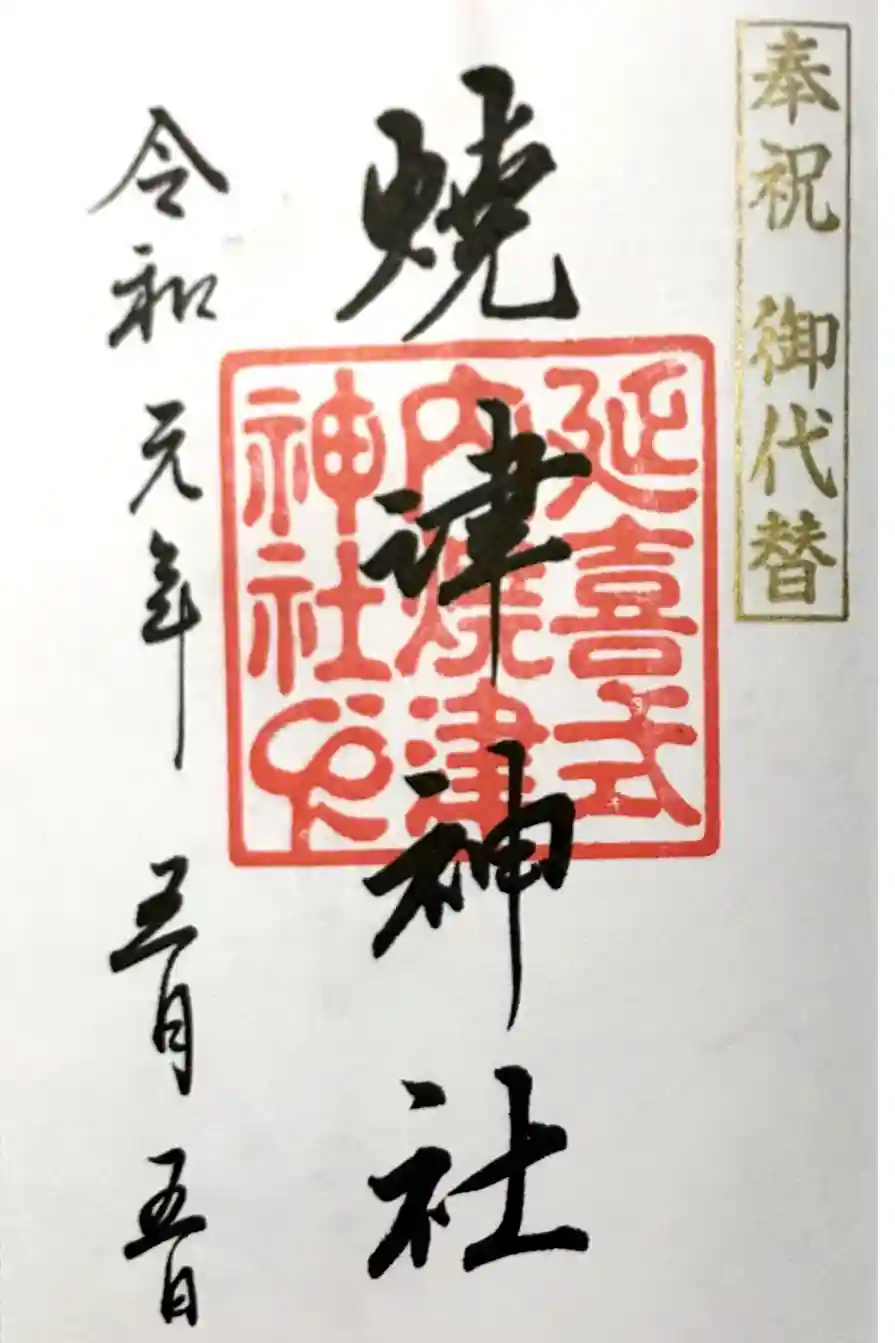 奉祝 御代替
焼津神社
延喜式
内焼津
神社印
令和元年五月五日